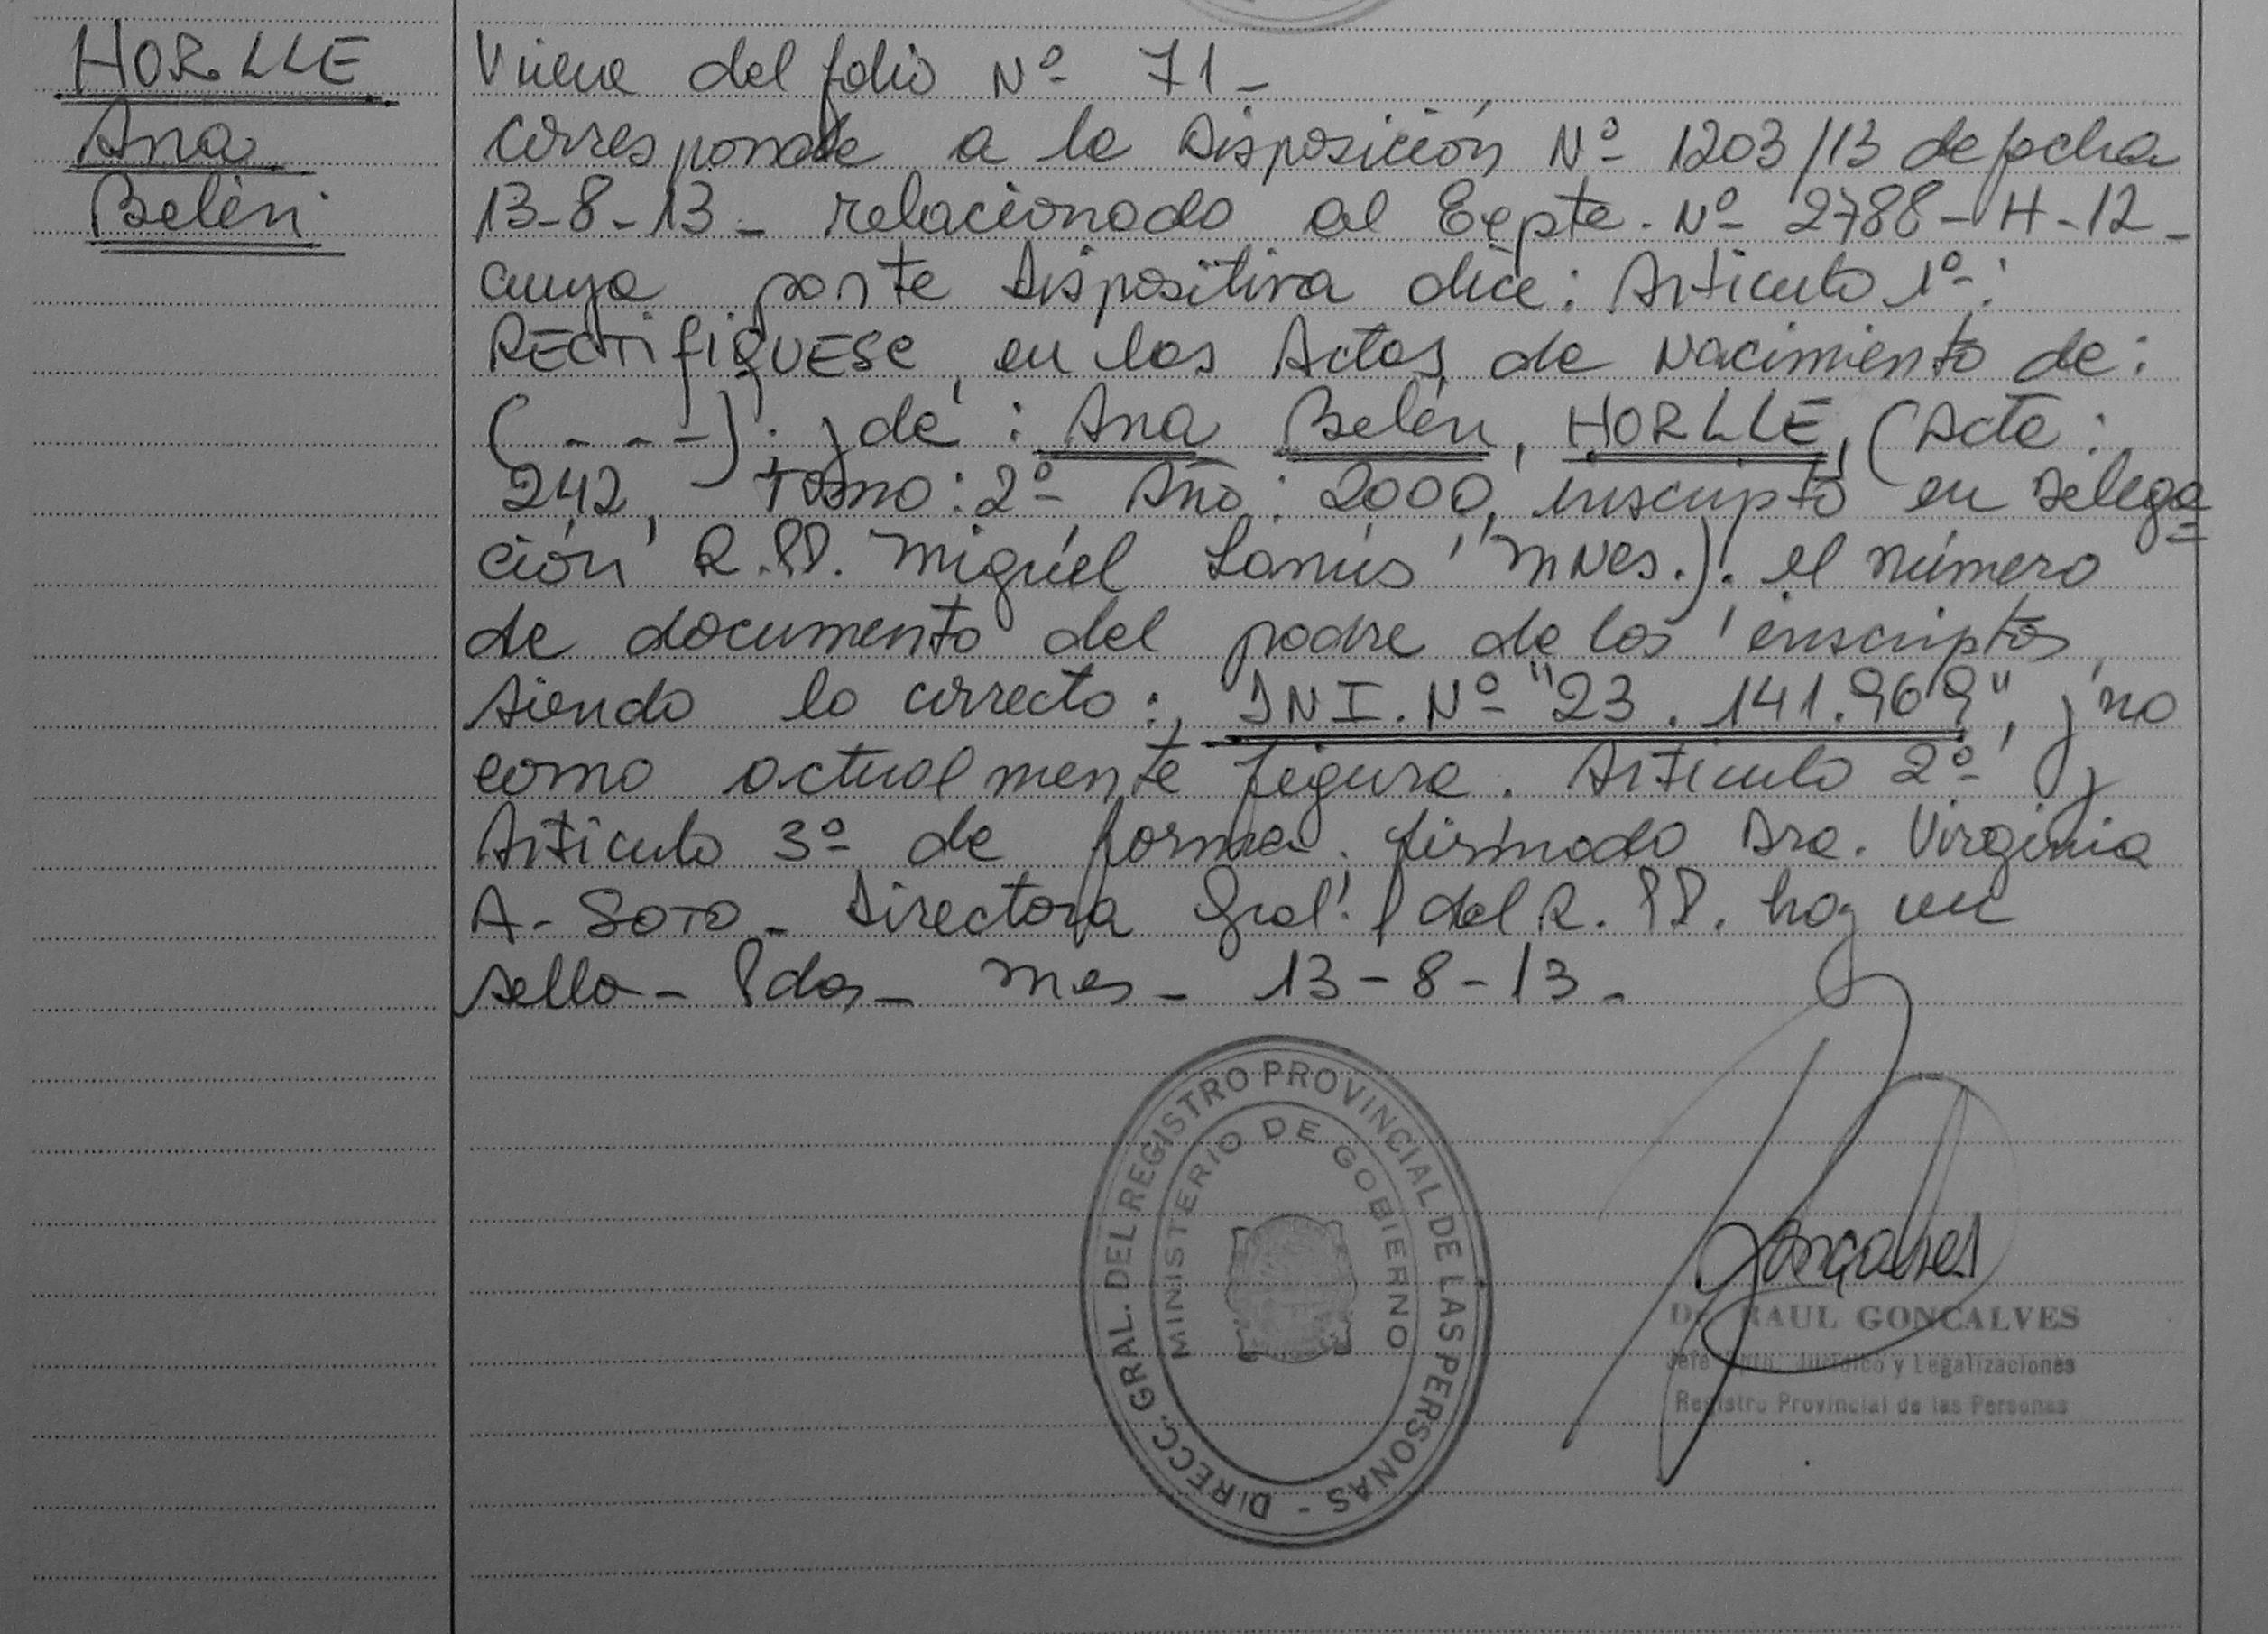 HORLLE
Ana
Belén
Viene del folio Nº 71_
Corresponde a la Disposición Nº 1203/13 de fecha
13-8-13_ relacionado al Expte. Nº 2788-H-12_
cuya parte Dispositiva dice: Articulo 1º:
RECTIFIQUESE, en las Actas de Nacimiento de:
(_ _ _). y de: Ana Belén, HORLLE, (Acta:
242, Tomo: 2º Año: 2000, inscripta en Delega
ción R.PP. Miguel Lanús, Mnes.). el número
de documento del padre de los inscriptos,
siendo lo correcto: D N I. Nº "23.141.969", y no
como actualmente figura. Articulo 2º y
Articulo 3º de forma. firmado Dra. Virginia
A- SOTO_ Directora Gral. del R. PP. hay un
sello_ Pdas_ Mnes_ 13-8-13_
DIRECC. GRAL. DEL REGISTRO PROVINCIAL DE LAS PERSONAS -
MINISTERIO DE GOBIERNO
Goncalves
Dr. RAUL GONCALVES
Jefe Dpto. Jurídico y Legalizaciones
Registro Provincial de las Personas